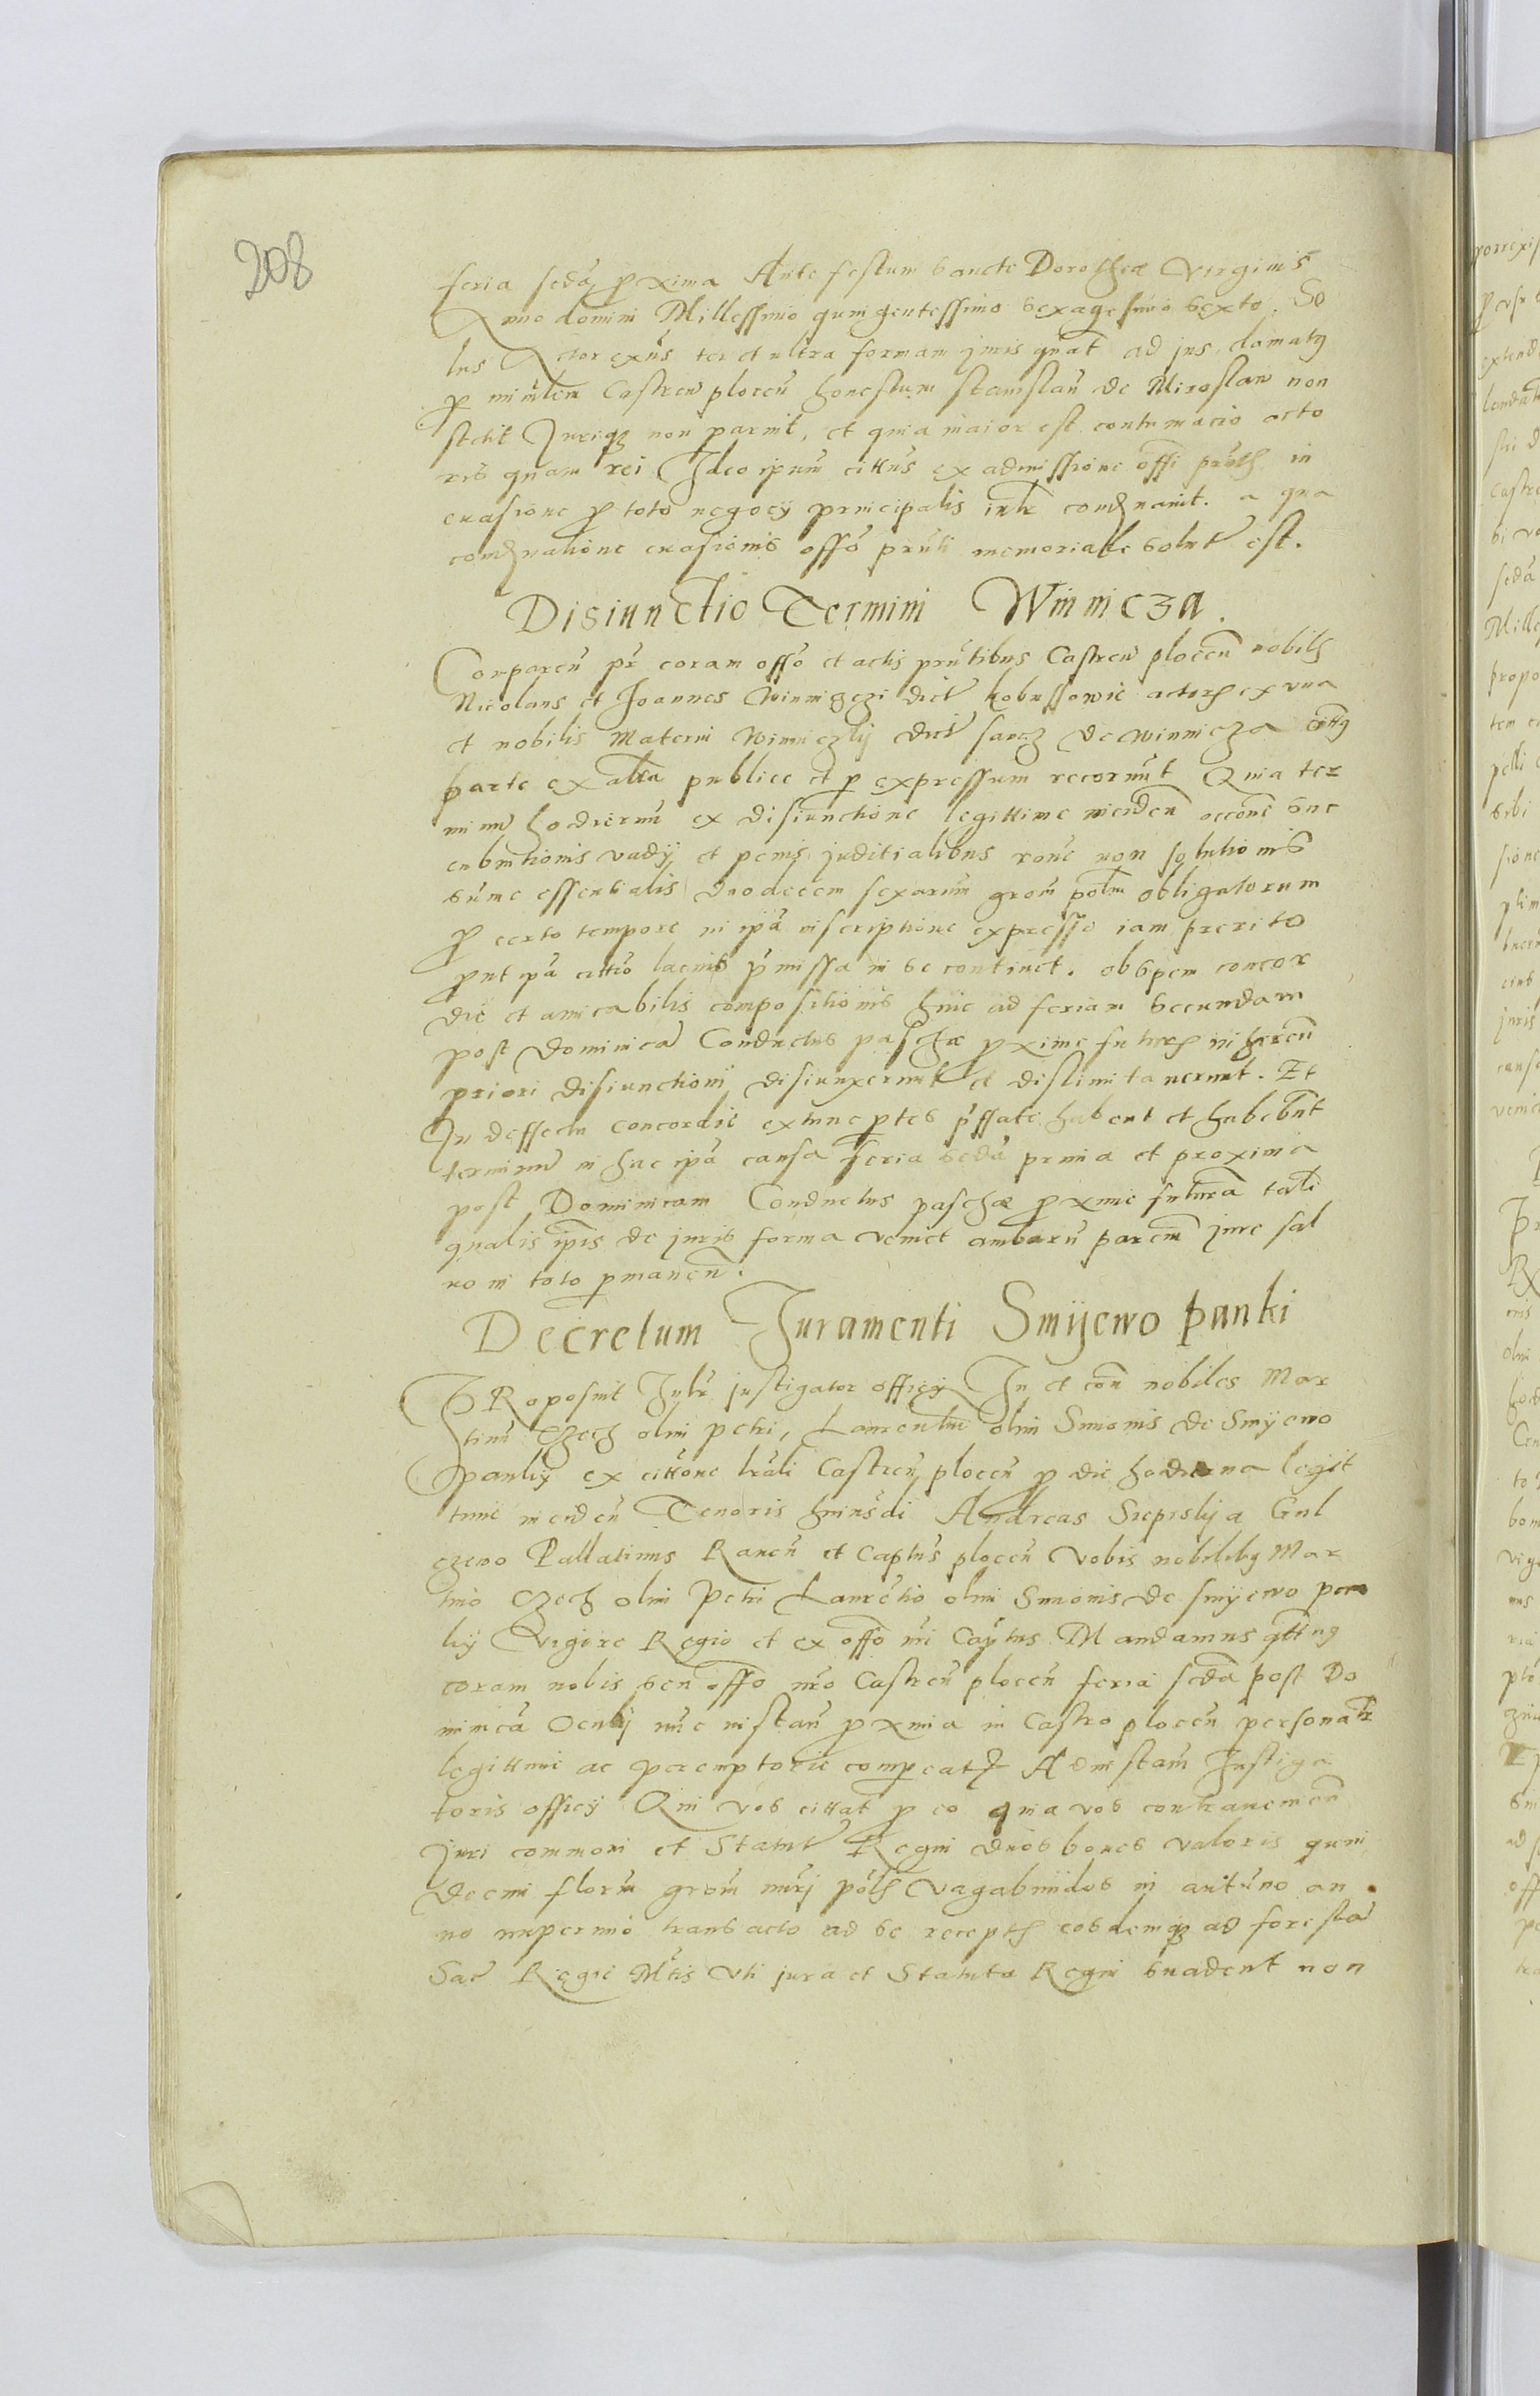 208
feria scda proxima Ante festum Sancte Dorotheæ Virginis
Anno domini Millessimo quingentessimo sexagesimo sexto. So
lus Actor exns ter et ultra formam juris quat ad jus clamatq
p minlem Castren plocen honestum stanislau de Miroslaw non
stetit Juriqz non paruit, et quia maior est contumacio acto
ris quam rei Ideo ipsum cittus ex admissione offi pntis in
euasione p toto negocy principalis inlr condnauit. a qua
condnatione euasionis offo pnti memoriale solut est.
Disiunctio Termini Winnicza.
Comparen pr coram offo et actis pntibus Castren plocen nobils
Nicolaus et Joannes Winniczczi dict kobussowie actores ex vna
et nobilis Materni Winniczky dict sancz de winnicza citq
parte ex altra publice et p expressum recornut Quia ter
minu hodiernu ex disiunctione legittime inciden occone
cubintionis vadij et penis juditialibus rone non solutionis
sume essentialis duodecem sexarum grom polm obligatorum
p certo tempore in ipa inscriptione expresse iam preterito
prout ipa cittio lacius pmissa in se continet. ob spem concor
die et amicabilis compositionis hinc ad feriam secundam
post dominica Conductus paschæ pxime future inheren
priori disiunctioni disiunxerunt et dislimitauerunt. Et
In deffectu concordie extunc ptes pffate habent et habebnt
terminu in hac ipa causa feria scda prima et proxima
post Dominicam Conductus paschæ pxime futura tali
qualis ipis de juris forma veniet ambaru parciu jure sal
uo in toto pmanen.
Decretum Juramenti Smijewo panki
PRoposuit Inlr justigator officy In et con nobiles Mar
tinu Czech olim petri, Laurentiu olim Simonis de Smyewo
panky ex cittone lrali Castren plocen p die hodierna legit
time inciden Tenoris huiusdi Andreas Sieprsky a Gul
czewo Pallatinus Rauen et Captus plocen Vobis nobilibq Mar
tino Czech olim Petri Lauretio olim Simonis de smyewo pan
ky Vigore Regio et ex offo mi Captus Mandamus qttnq
coram nobis seu offo nro Castren plocen feria scda post Do
minica Oculi nuc instan pxima in Castro plocen personalr
legittime ac peremptorie compeatis Ad instam Instiga
toris officy Qui vos cittat p eo quia vos contrauenien
Juri communi et Statut Regni duos boues valoris quin
decem florm grom nuri polis vagabundos in autuno an
no nupermo transacto ad se receptis eosdemqz ad foresta
Sac Regie Mtis Vti jura et Statuta Regni suadent non